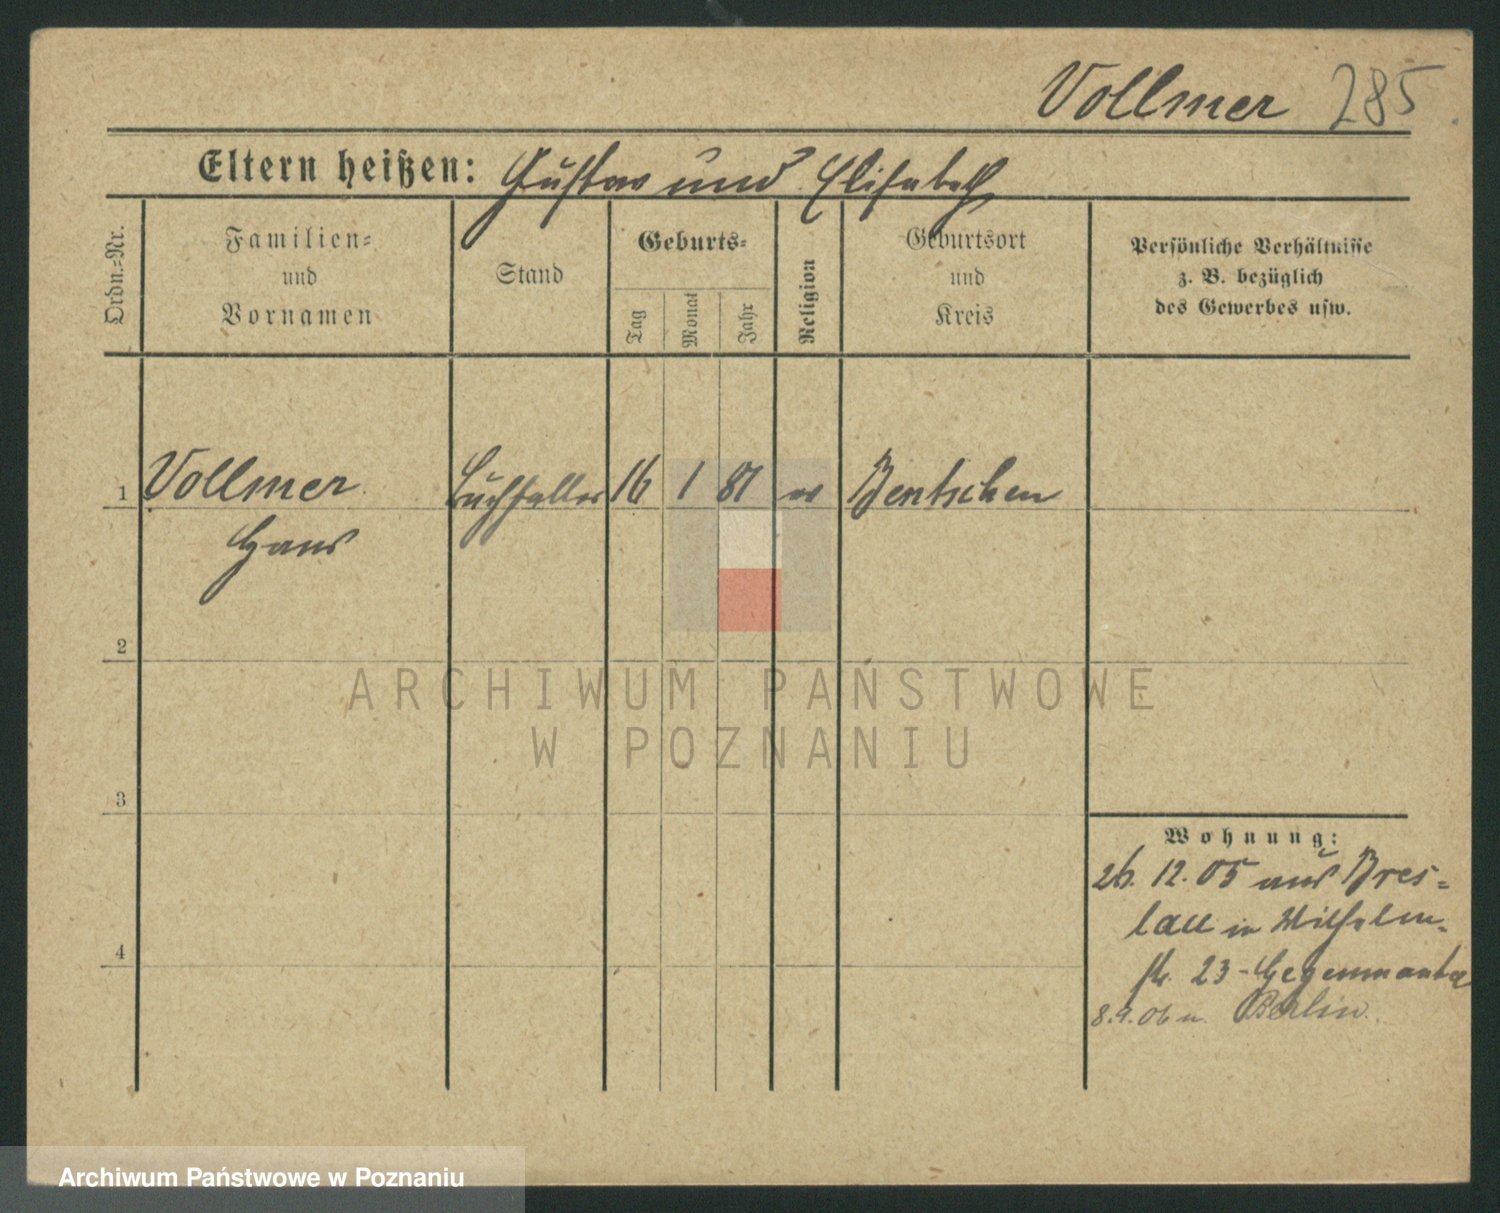 Vollmer 285
Eltern heißen: Gustav und Elisabeth
Ordn.-Nr.
Familien-
und
Vornamen
Stand
Geburts-
Tag
Monat
Jahr
Religion
Geburtsort
und
Kreis
Persönliche Verhältnisse
z. B. bezüglich
des Gewerbes usw.
1 Vollmer Buchhalter 16 1 81 Bentschen
Hans
2
ARCHIWUM PAŃSTWOWE
W POZNANIU
3
Wohnung:
26. 12. 05 aus Bres-
lau in Wilhelm-
str. 23-
8.9.06 n. Berlin.
4
Archiwum Państwowe w Poznaniu